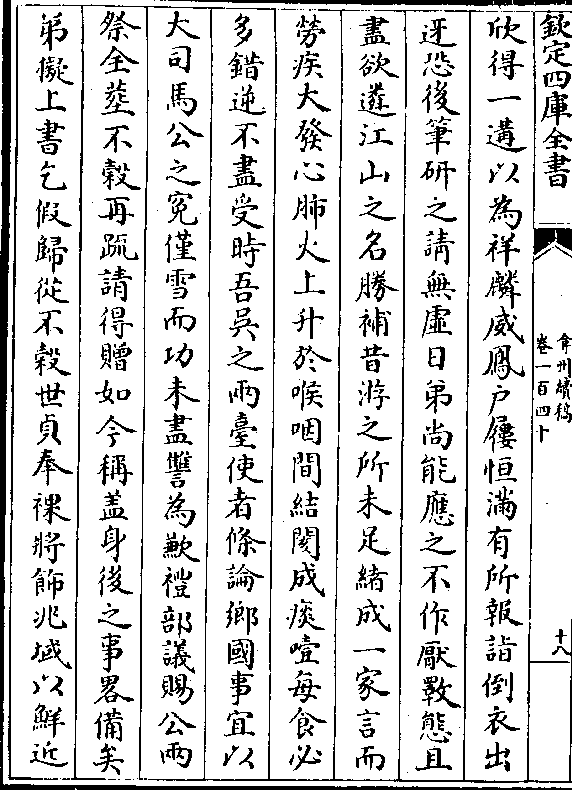 欽定四庫全書
弇州續稿
卷一百四十
十八
欣得一遘以為祥麟威鳳户屨恒滿有所報詣倒衣出
迓恐後筆研之請無虛日弟尚能應之不作厭斁態且
盡欲遊江山之名勝補昔游之所未足緒成一家言而
勞疾大發心肺火上升於喉咽間結閡成痰噎每食必
多錯逆不盡受時吾吳之兩臺使者條論鄉國事宜以
大司馬公之寃僅雪而功未盡讐為歉禮部議賜公兩
祭全塟不榖再疏請得贈如今稱盖身後之事畧備矣
弟擬上書乞假歸從不榖世貞奉祼將飾兆域以鮮近